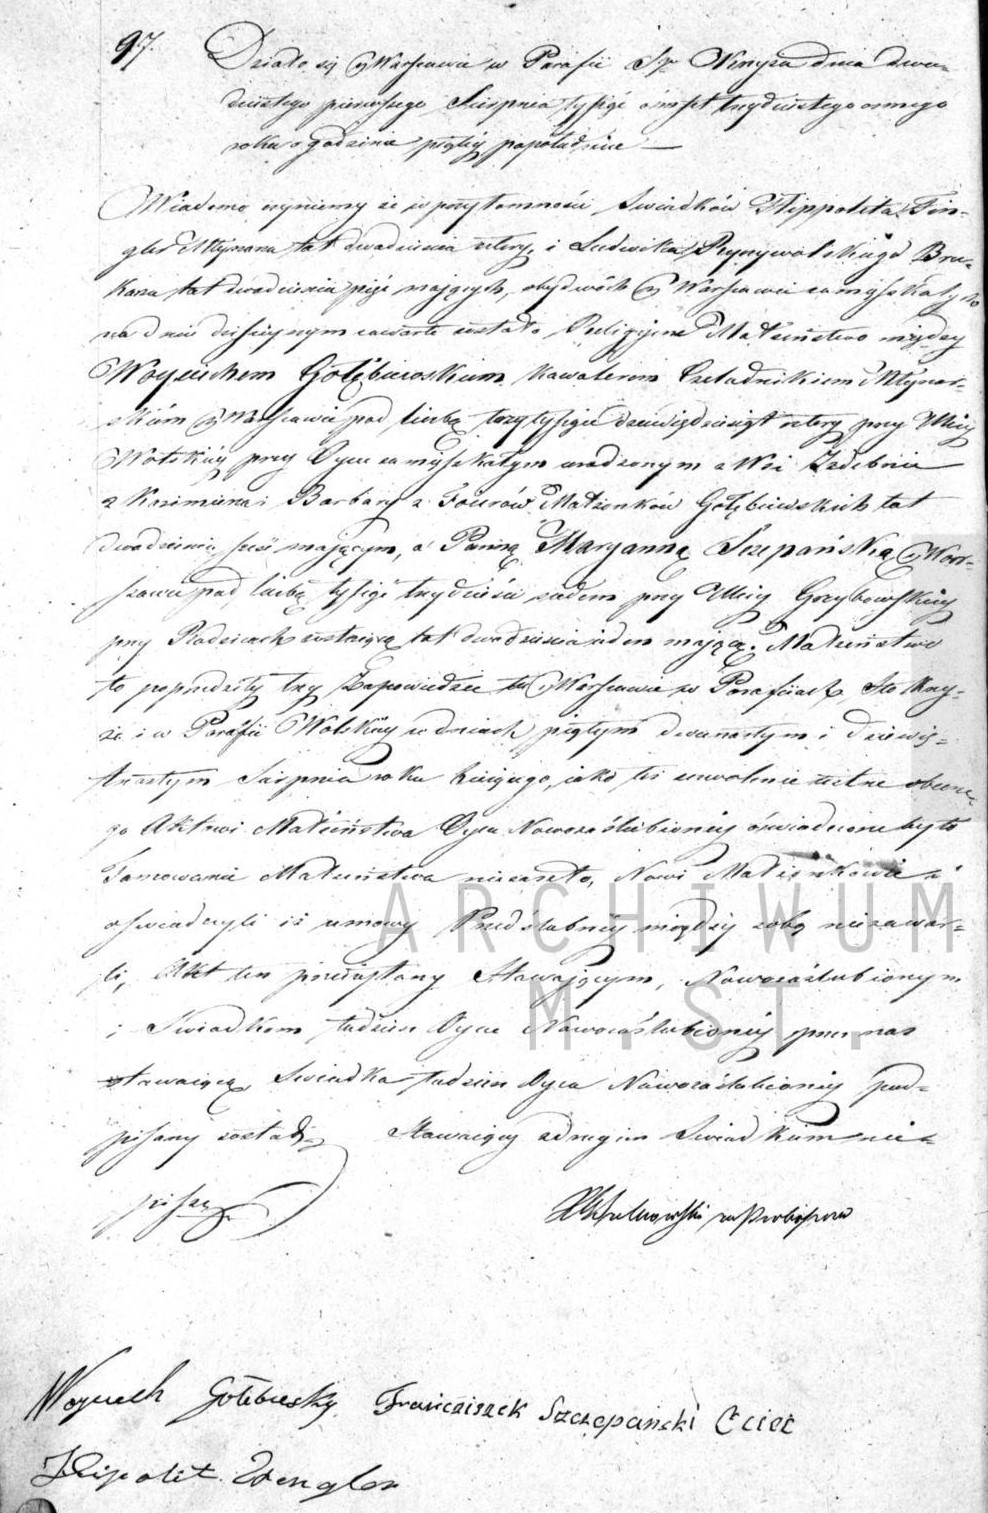 97. Działo się w Warszawie w Parafii Sgo Krzyża dnia dwu-
dziestego pierwszego Sierpnia tysiąc ośmset trzydziestego osmego
roku o godzinie piątéj popołudniu —
Wiadomo czyniemy że w przytomności Swiadków Hippolita
Młynarza lat dwadzieścia cztery, i Ludwika Bru-
karza lat dwadzieścia pięć mających, obydwóch w Warszawie zamięszkałych
na dniu dzisieyszym zawarte zostało Religijne Małżeństwo między
Woyciechem Gołębiewskim kawalerem Czeladnikiem Młynar-
skim w Warszawie pod liczbą trzy tysiące dziewięćdziesiąt cztery przy Ulicy
Wolskiéy przy Oycu zamięszkałym urodzonym z Wsi Izdebnie
z Kazimierza i Barbary z Małżonków Gołębiewskich lat
dwadzieścia sześć maiącym, a Panną Maryanną Szczepańską w War-
szawie pod liczbą tysiąc trzydzieści siedem przy Ulicy Grzybowskiey
przy Rodzicach zostaiącą lat dwadzieścia ieden maiącą. Małżeństwo
to poprzedziły trzy Zapowiedzie tu w Warszawie w Parafiach, Sto Krzy-
zkiey i w Parafii Wolskiéy w dniach piątym dwunastym i dziewię-
tnastym Sierpnia roku bieżącego, iako też zezwolenie ustne obecne-
go Aktowi Małżeństwa Oyca Nowozaślubionéy oświadczone było
Tamowanie Małżeństwa niezaszło, Nowi Małżonkowie
oświadczyli iż umowy Przedślubnéy między sobą niezawar-
li, Akt ten przeczytany Stawającym, Nowozaślubionym
i Swiadkom tudzież Oycu Nowozaślubionéy przez nas
stawaiącą Swiadka tudzież Oyca Nowozaślubionéy pod-
pisany został, Stawaiący z drugim Swiadkiem nie-
piszą
za Proboszcza
Woyciech Gołebiesky Franciszek Szczepański Ociec
Hipolit Wengler
ARCHIWUM
M. ST.